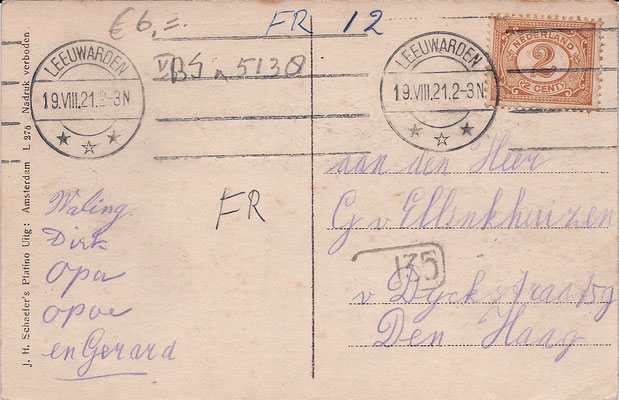 € 6,=.
FR 12
VBS n 5138
LEEUWARDEN
19.VIII.21.2-3N
LEEUWARDEN
19.VIII.21.2-3N
NEDERLAND
2
(2 CENT)
J. H. Schaefer's Platino Uitg: Amsterdam L 276 Nadruk verboden
Waling
Dirk
Opa
opoe
en Gerard
FR
aan den Heer
G v Ellinkhuizen
135
v Dyck straat 59
Den Haag